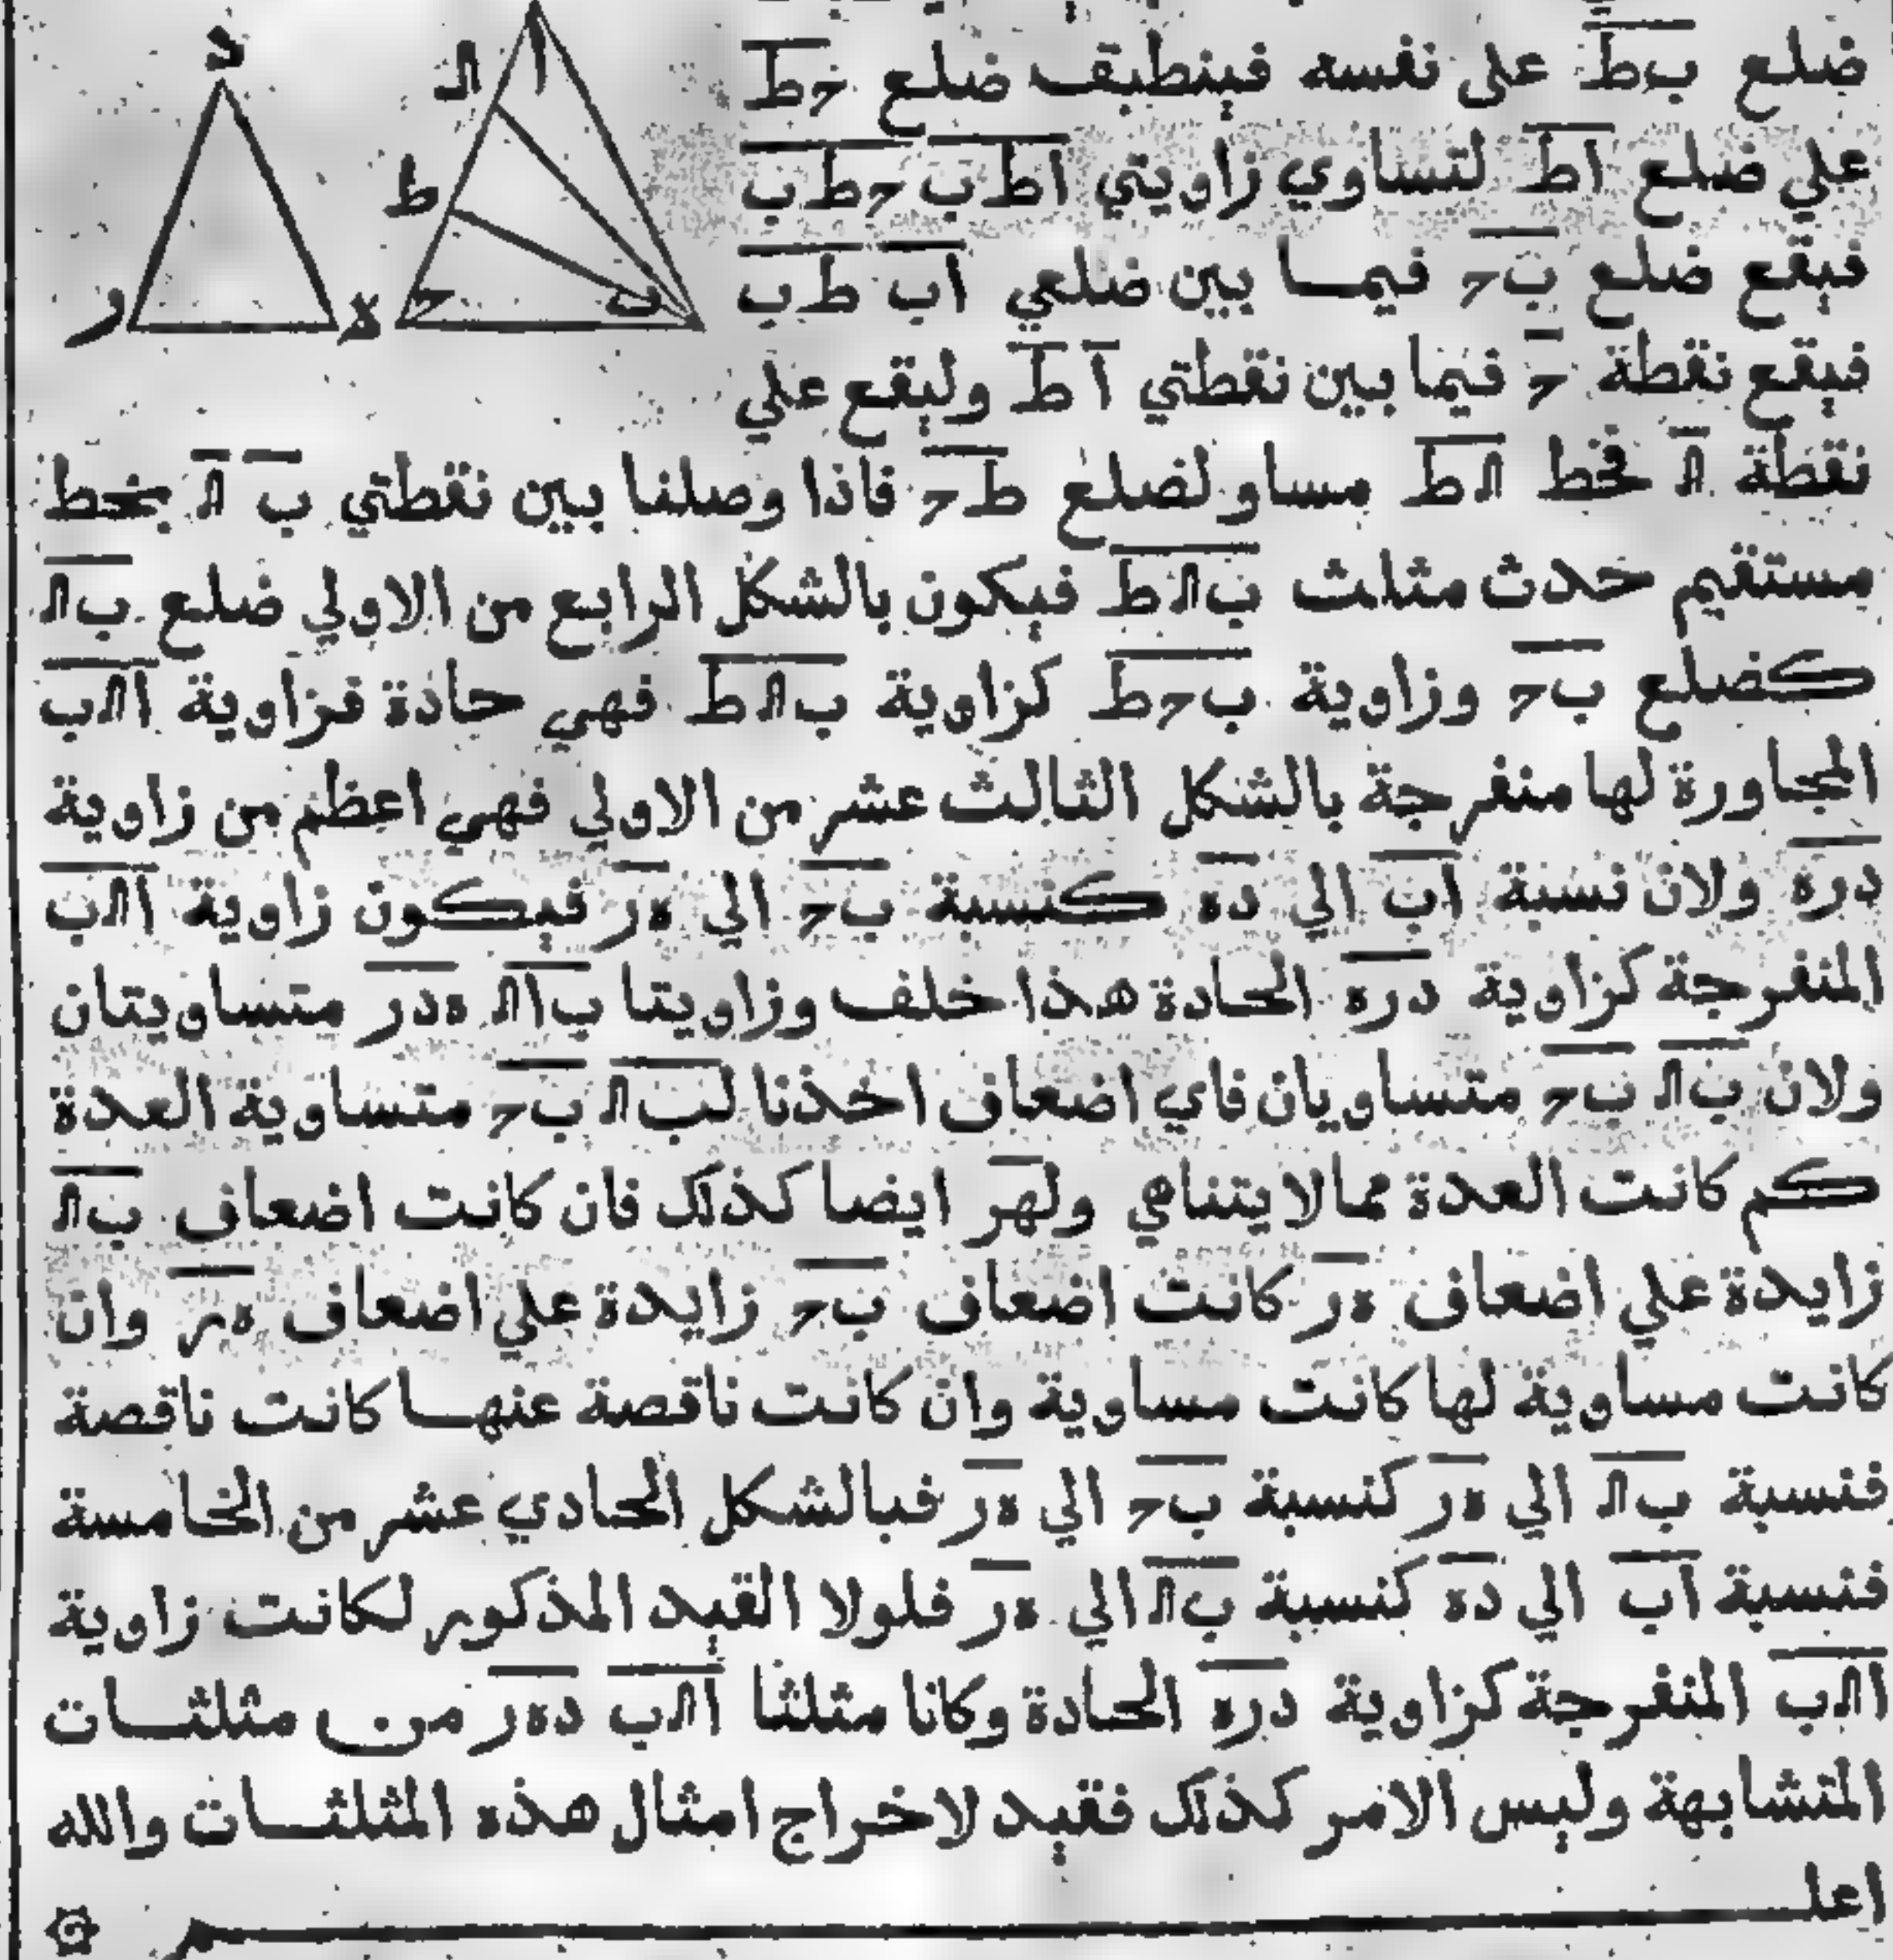 ضلع بط على نفسه فينطبق ضلع حط
علي ضلع اط لتساوي زاويتي اطب حطب
فيقع ضلع بح فيما بين ضلعي اب طب
فيقع نقطة ح فيما بين نقطتي ا ط وليقع علي
نقطة ﻙ فخط ﻙط مساو لضلع طح فاذا وصلنا بين نقطتي ب ﻙ بخط
مستقيم حدث مثلث بﻙط فيكون بالشكل الرابع من الاولي ضلع بﻙ
كضلع بح وزاوية بحط كزاوية بﻙط فهي حادة فزاوية اﻙب
المجاورة لها منفرجة بالشكل الثالث عشر من الاولي فهي اعظم من زاوية
دره ولان نسبة اب الي ده كنسبة بح الي هر فيكون زاوية اﻙب
المنفرجة كزاوية دره الحادة هذا خلف وزاويتا باﻙ هدر متساويتان
ولان بﻙ بح متساويان فاي اضعاف اخذنا لبﻙ بح متساوية العدة
كم كانت العدة مما لا يتناهي ولهر ايضا كذلك فان كانت اضعاف بﻙ
زايدة علي اضعاف هر كانت اضعاف بح زايدة علي اضعاف هر وان
كانت مساوية لها كانت مساوية وان كانت ناقصة عنها كانت ناقصة
فنسبة بﻙ الي هر كنسبة بح الي هر فبالشكل الحادي عشر من الخامسة
فنسبة اب الي ده كنسبة بﻙ الي هر فلولا القيد المذكور لكانت زاوية
اﻙب المنفرجة كزاوية دره الحادة وكانا مثلثا اﻙب دهر من مثلثات
المتشابهة وليس الامر كذلك فقيد لاخراج امثال هذه المثلثات والله
اعلم
د
ا
ﻙ
ط
ح
ب
ه
ر